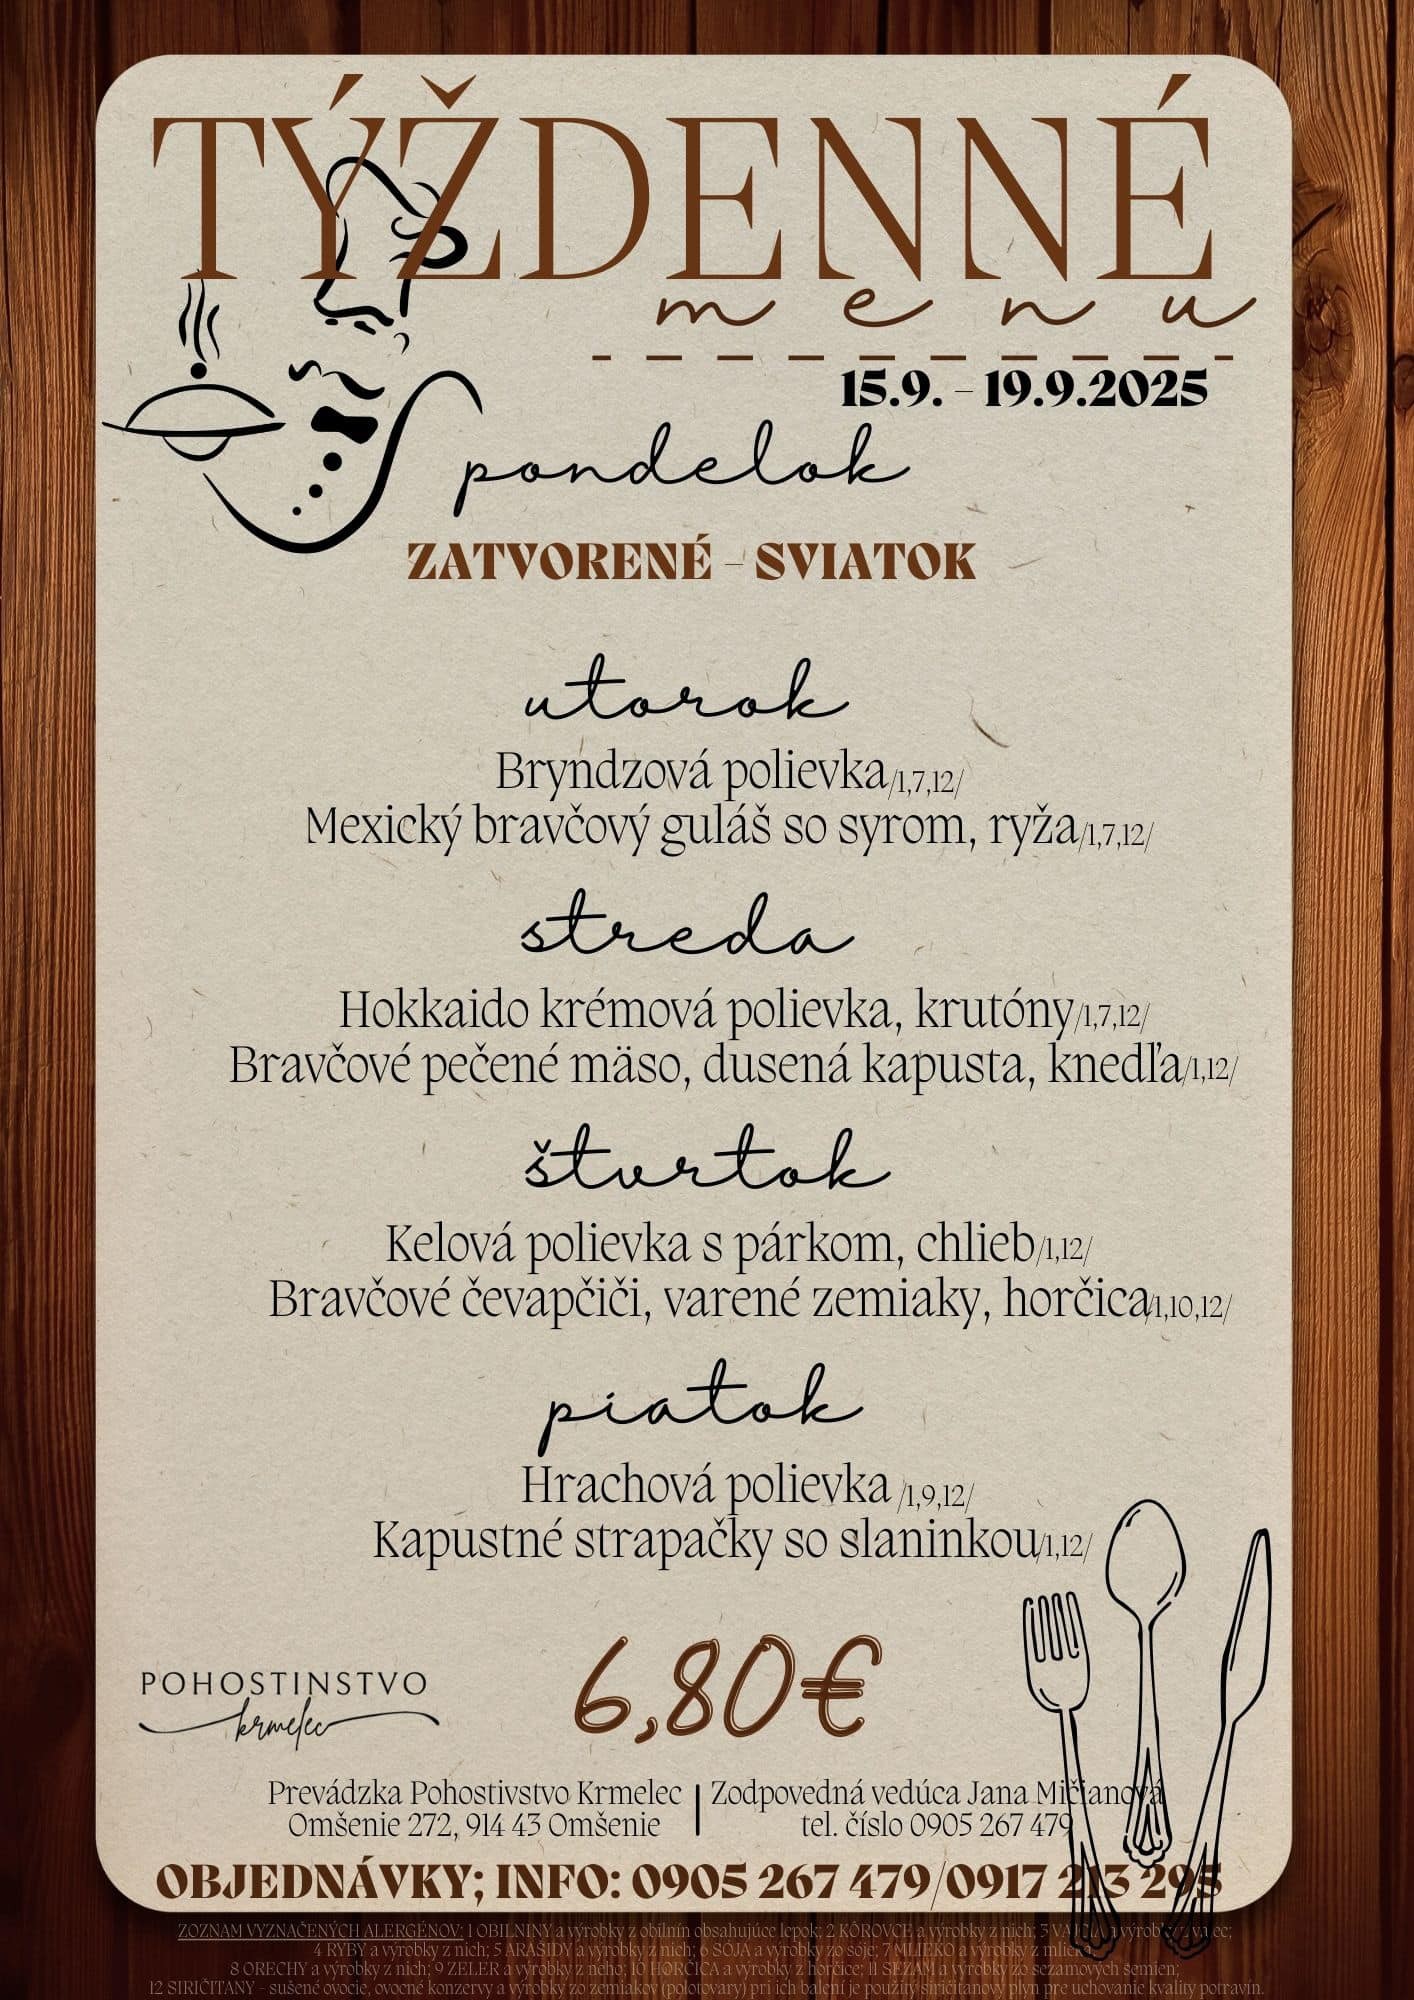 TÝŽDENNÉ
menu
15.9. - 19.9.2025
pondelok
ZATVORENÉ - SVIATOK
utorok
Bryndzová polievka/1,7,12/
Mexický bravčový guláš so syrom, ryža/1,7,12/
streda
Hokkaido krémová polievka, krutóny/1,7,12/
Bravčové pečené mäso, dusená kapusta, knedľa/1,12/
štvrtok
Kelová polievka s párkom, chlieb/1,12/
Bravčové čevapčiči, varené zemiaky, horčica/1,10,12/
piatok
Hrachová polievka /1,9,12/
Kapustné strapačky so slaninkou/1,12/
6,80€
POHOSTINSTVO
krmelec
Prevádzka Pohostivstvo Krmelec | Zodpovedná vedúca Jana Mičianová
Omšenie 272, 914 43 Omšenie | tel. číslo 0905 267 479
OBJEDNÁVKY; INFO: 0905 267 479/0917 213 295
ZOZNAM VYZNAČENÝCH ALERGÉNOV: 1 OBILNINY a výrobky z obilnín obsahujúce lepok; 2 KÔROVCE a výrobky z nich; 3 VAJCIA a výrobky z vajec;
4 RYBY a výrobky z nich; 5 ARAŠIDY a výrobky z nich; 6 SÓJA a výrobky zo sóje; 7 MLIEKO a výrobky z mlieka;
8 ORECHY a výrobky z nich; 9 ZELER a výrobky z neho; 10 HORČICA a výrobky z horčice; 11 SEZAM a výrobky zo sezamových semien;
12 SIRIČITANY - sušené ovocie, ovocné konzervy a výrobky zo zemiakov (polotovary) pri ich balení je použitý siričitanový plyn pre uchovanie kvality potravín.